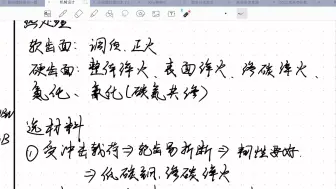 软齿面：调质、正火
硬齿面：整体淬火、表面淬火、渗碳淬火、
氮化、氰化(碳氮共渗)
选材料
①受冲击载荷⇒轮齿易折断⇒韧性要好.
⇒低碳钢.渗碳淬火